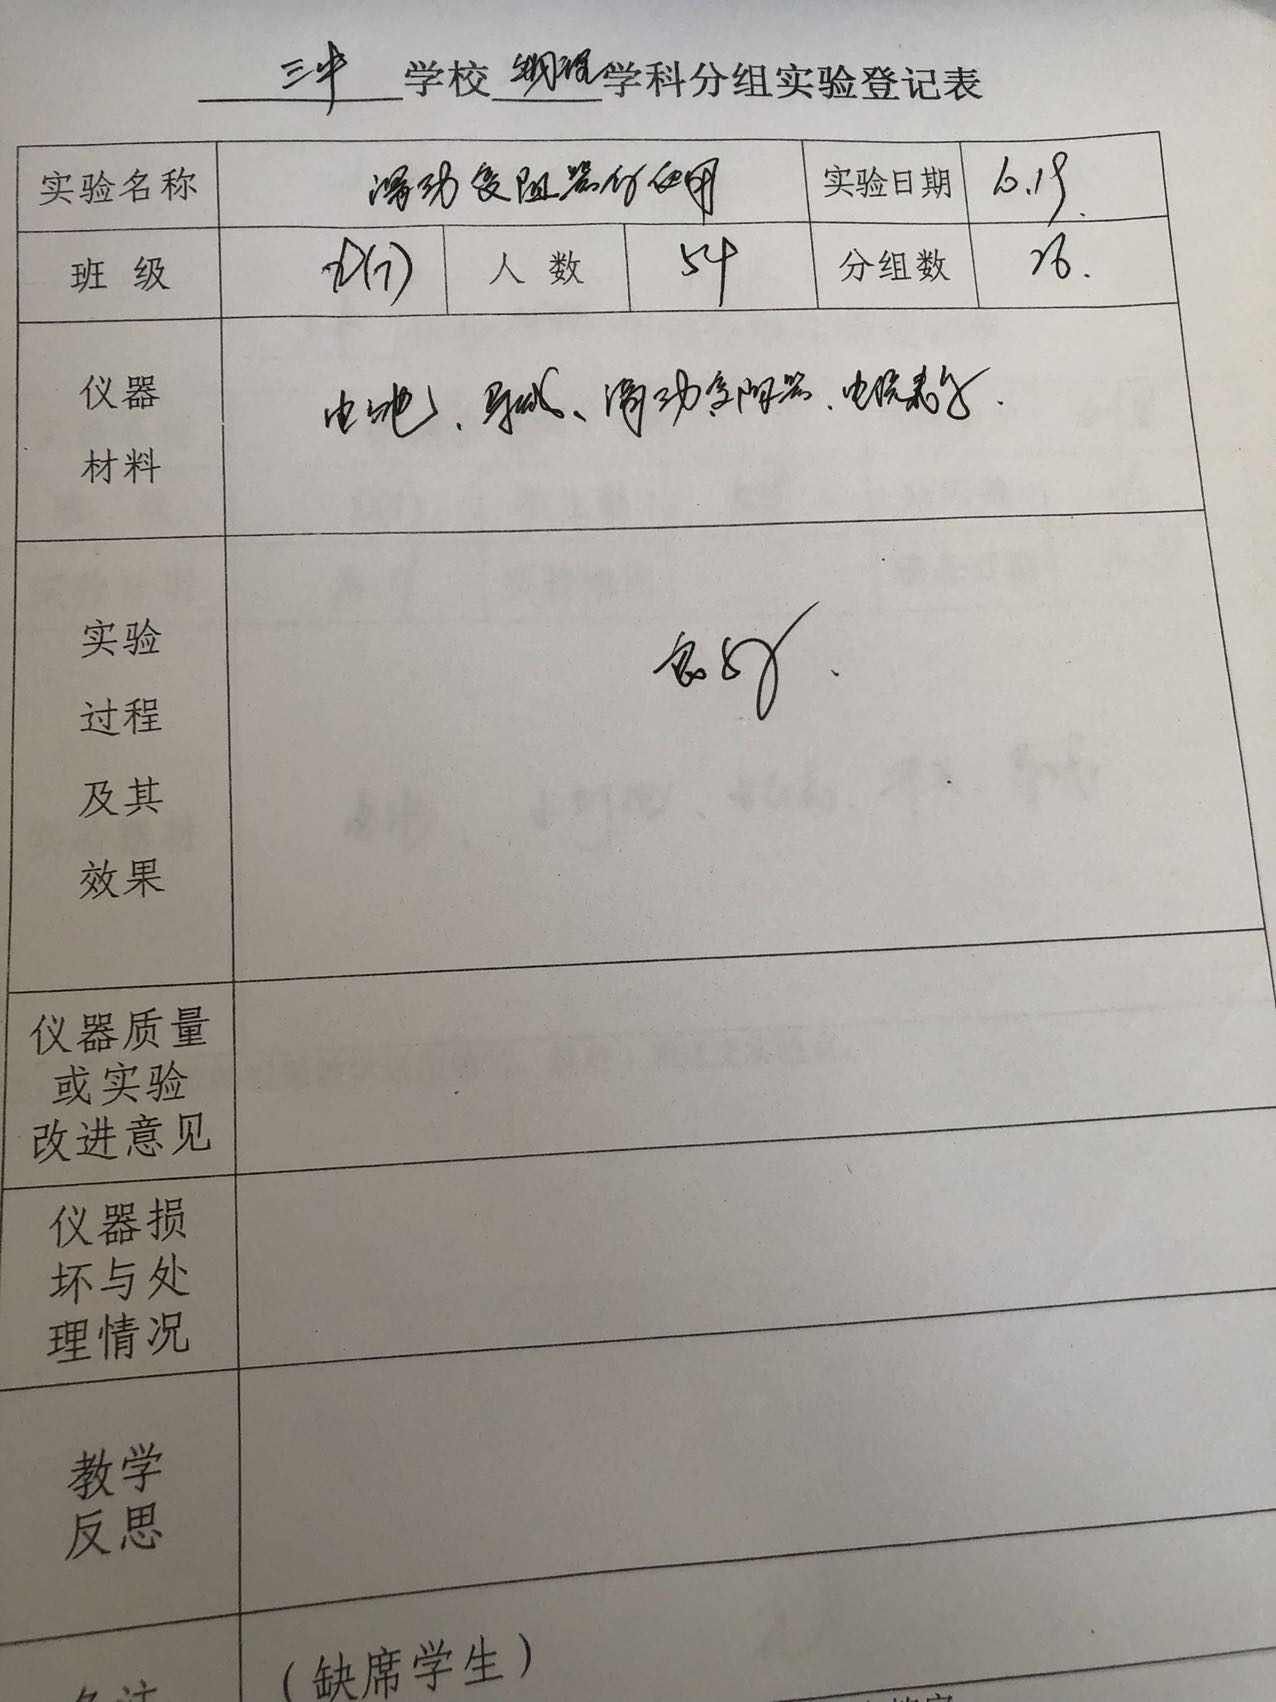 三中 学校 物理 学科分组实验登记表
实验名称 滑动变阻器的使用 实验日期 6.19.
班级 (7) 人数 54 分组数 26.
仪器 材料 电池、导线、滑动变阻器、电流表等.
实验
过程
及其
效果
良好.
仪器质量
或实验
改进意见
仪器损
坏与处
理情况
教学
反思
(缺席学生)